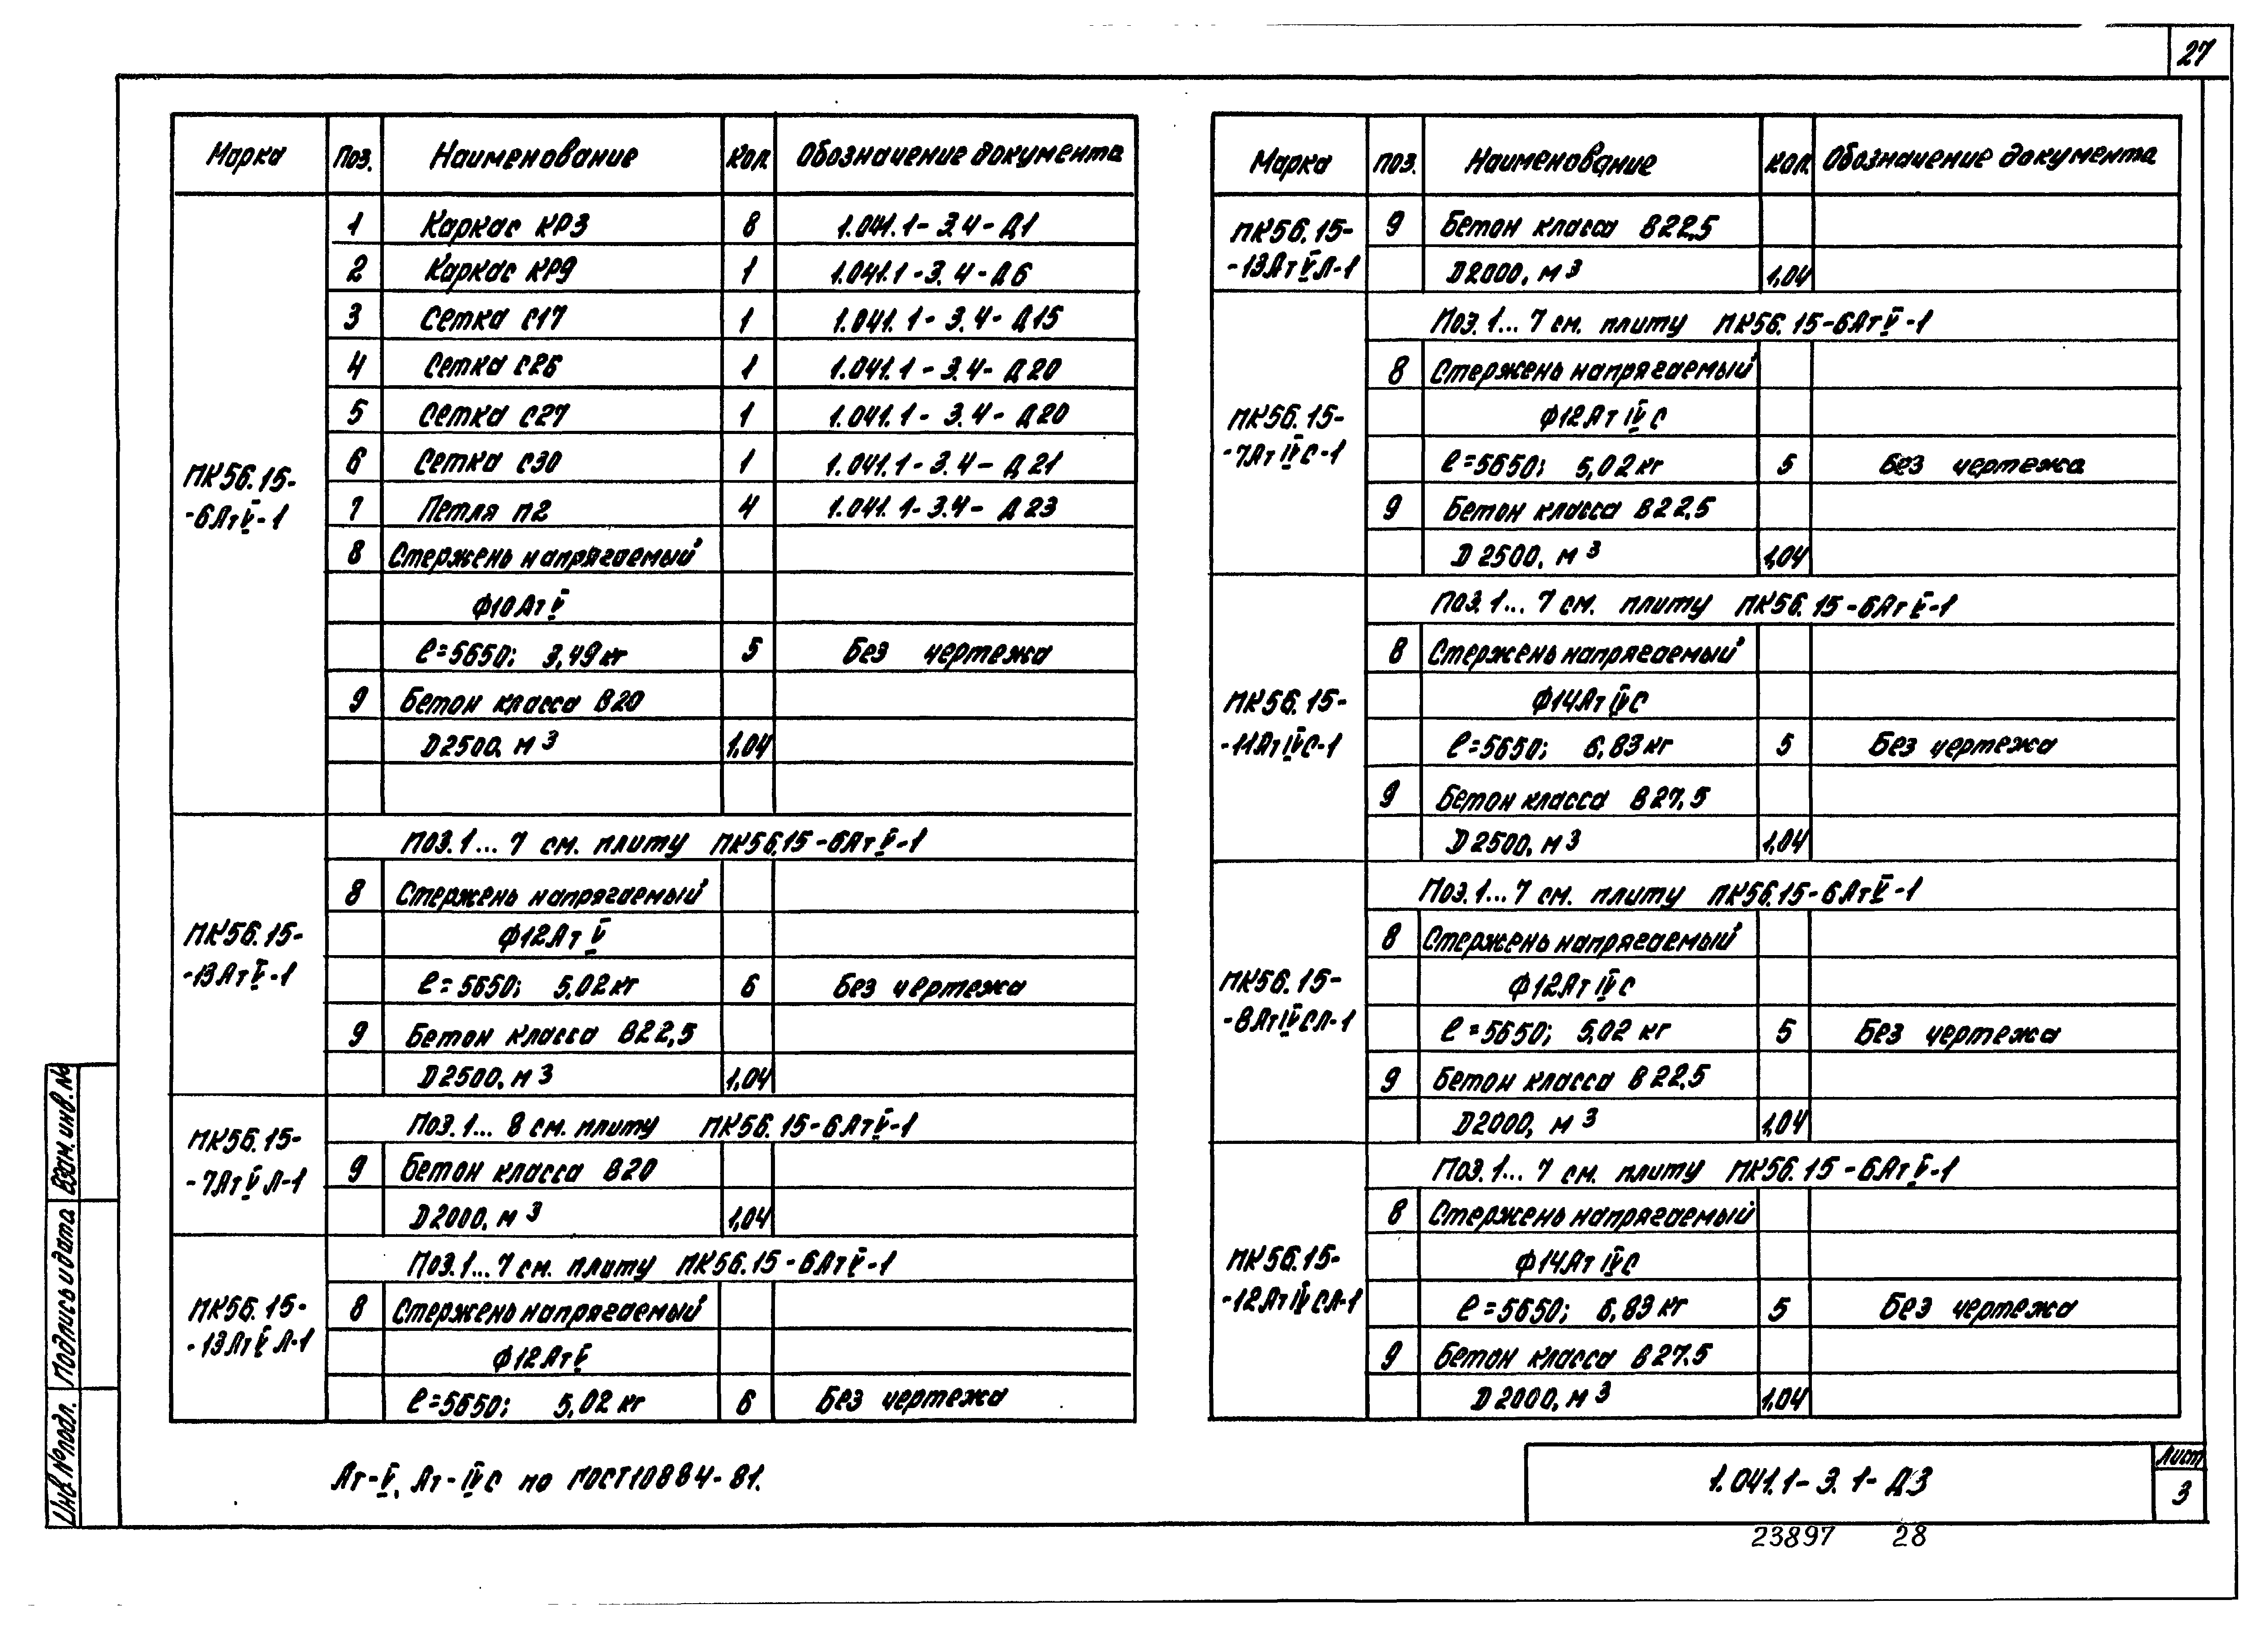 27
Марка Поз. Наименование Кол. Обозначение документа
ПК56.15-
-6АтV-1
1 Каркас КР3 8 1.041.1-3.4-Д1
2 Каркас КР9 1 1.041.1-3.4-Д6
3 Сетка С17 1 1.041.1-3.4-Д15
4 Сетка С26 1 1.041.1-3.4-Д20
5 Сетка С27 1 1.041.1-3.4-Д20
6 Сетка С30 1 1.041.1-3.4-Д21
7 Петля П2 4 1.041.1-3.4-Д23
8 Стержень напрягаемый
Ф10АтV
ℓ=5650; 3,49кг 5 Без чертежа
9 Бетон класса В20
D2500, м3 1,04
ПК56.15-
-13АтV-1
Поз.1...7 см. плиту ПК56.15-6АтV-1
8 Стержень напрягаемый
Ф12АтV
ℓ=5650; 5,02кг 6 Без чертежа
9 Бетон класса В22,5
D2500, м3 1,04
ПК56.15-
-7АтVЛ-1
Поз.1...8 см. плиту ПК56.15-6АтV-1
9 Бетон класса В20
D2000, м3 1,04
ПК56.15-
-13АтVЛ-1
Поз.1...7 см. плиту ПК56.15-6АтV-1
8 Стержень напрягаемый
Ф12АтV
ℓ=5650; 5,02кг 6 Без чертежа
Марка Поз. Наименование Кол. Обозначение документа
ПК56.15-
-13АтVЛ-1
9 Бетон класса В22,5
D2000, м3 1,04
ПК56.15-
-7АтIVС-1
Поз.1...7 см. плиту ПК56.15-6АтV-1
8 Стержень напрягаемый
Ф12АтIVС
ℓ=5650; 5,02кг 5 Без чертежа
9 Бетон класса В22,5
D2500, м3 1,04
ПК56.15-
-11АтIVС-1
Поз.1...7 см. плиту ПК56.15-6АтV-1
8 Стержень напрягаемый
Ф14АтIVС
ℓ=5650; 6,83кг 5 Без чертежа
9 Бетон класса В27,5
D2500, м3 1,04
ПК56.15-
-8АтIVСЛ-1
Поз.1...7 см. плиту ПК56.15-6АтV-1
8 Стержень напрягаемый
Ф12АтIVС
ℓ=5650; 5,02кг 5 Без чертежа
9 Бетон класса В22,5
D2000, м3 1,04
ПК56.15-
-12АтIVСЛ-1
Поз.1...7 см. плиту ПК56.15-6АтV-1
8 Стержень напрягаемый
Ф14АтIVС
ℓ=5650; 6,83кг 5 Без чертежа
9 Бетон класса В27,5
D2000, м3 1,04
Ат-V, Ат-IVС по ГОСТ10884-81.
1.041.1-3.1-Д3
Лист
3
23897 28
Инв.№подл. Подпись и дата Взам.инв.№